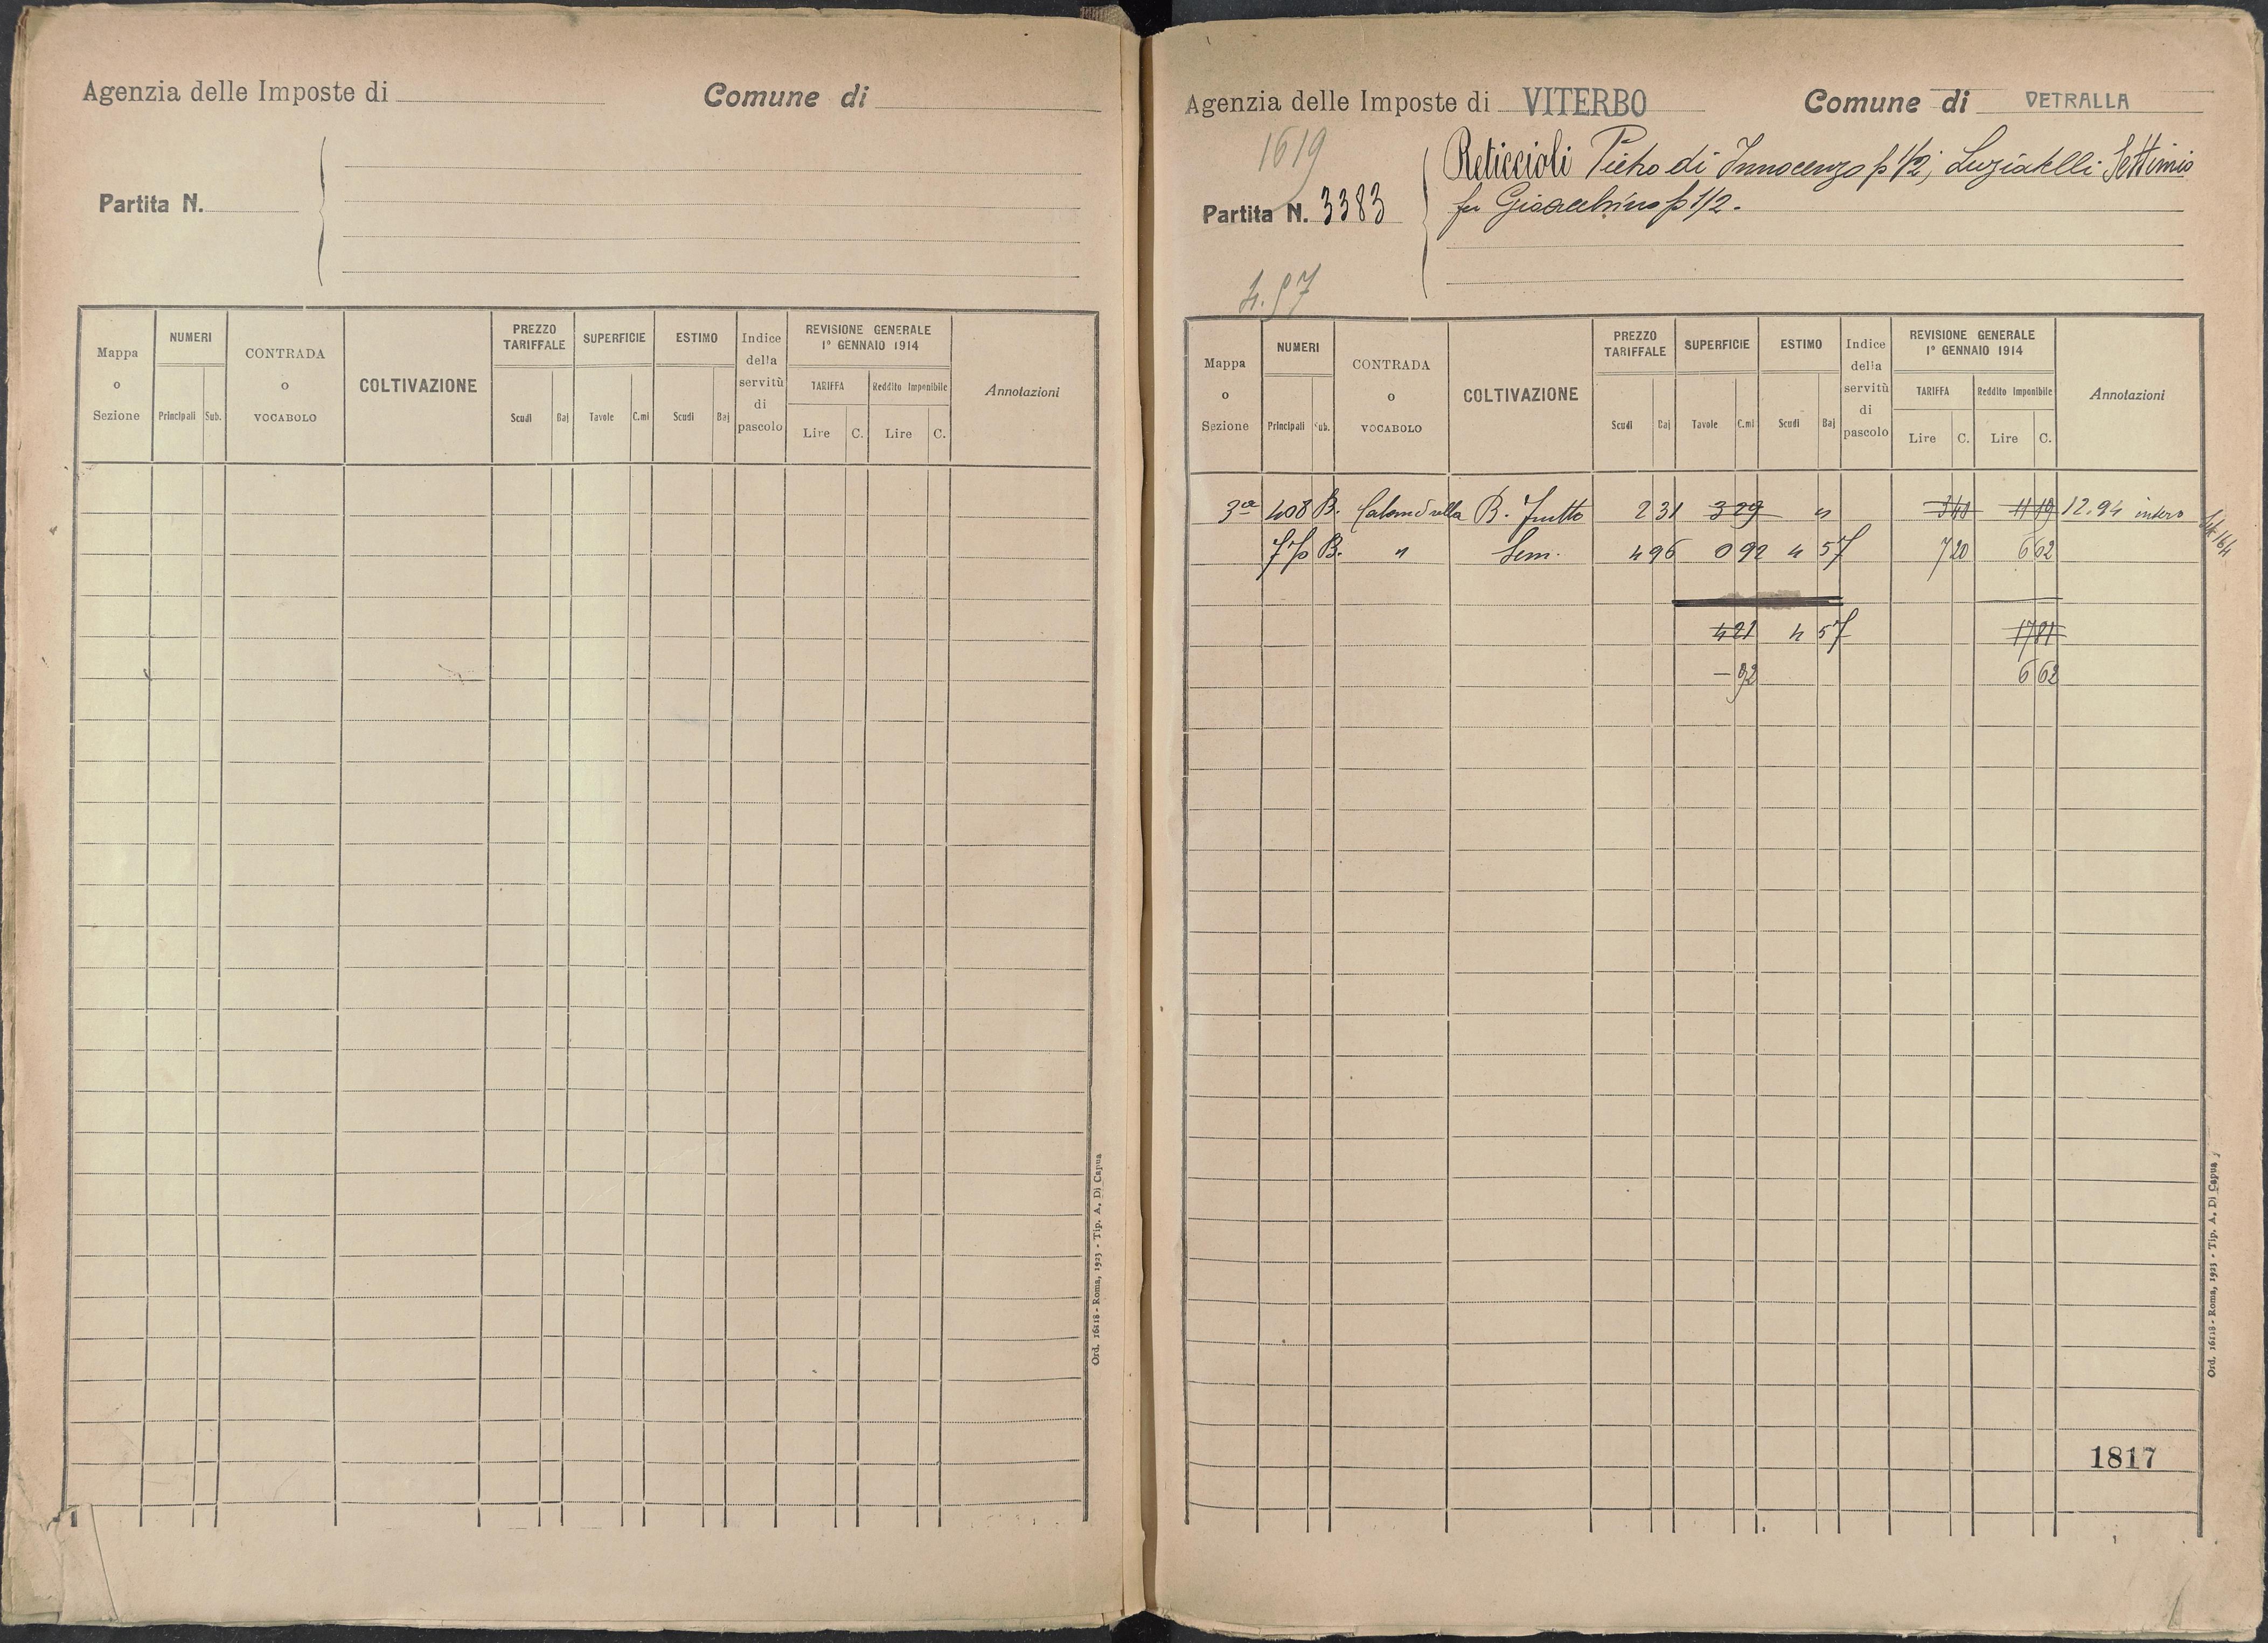 Agenzia delle Imposte di
Comune di
Partita N.
Mappa o Sezione
NUMERI
Principali
Sub.
CONTRADA o VOCABOLO
COLTIVAZIONE
PREZZO TARIFFALE
Scudi
Baj
SUPERFICIE
Tavole
C.mi
ESTIMO
Scudi
Baj
Indice della servitù di pascolo
REVISIONE GENERALE
1° GENNAIO 1914
TARIFFA
Reddito Imponibile
Lire C. Lire C.
Annotazioni
Ord. 16118 - Roma, 1923 - Tip. A. Di Capua
Agenzia delle Imposte di VITERBO
Comune di VETRALLA
1619
Partita N. 3383
Reticcioli Pietro di Innocenzo p 1/2; Luziatelli Settimio
fu Gioacchino p 1/2.
4.57
Mappa o Sezione
NUMERI
Principali
Sub.
CONTRADA o VOCABOLO
COLTIVAZIONE
PREZZO TARIFFALE
Scudi
Baj
SUPERFICIE
Tavole
C.mi
ESTIMO
Scudi
Baj
Indice della servitù di pascolo
REVISIONE GENERALE
1° GENNAIO 1914
TARIFFA
Reddito Imponibile
Lire C. Lire C.
Annotazioni
3a 408 B. B. frutto 2 31 3 29 " 3 40 11 19 12.94 intero
B. " Sem. 4 96 0 92 4 57 7 20 6 62
4 21 4 57 17 81
- 92 6 62
1817
Ord. 16118 - Roma, 1923 - Tip. A. Di Capua